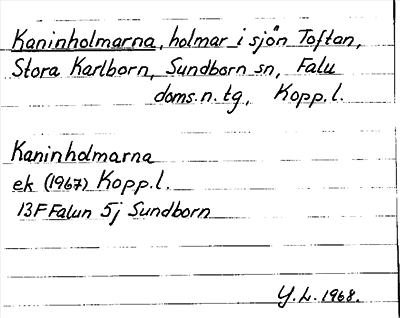 Kaninholmarna, holmar i sjön Toftan,
Stora Karlborn, Sundborn sn, Falu
doms.n.tg, Kopp.l.
Kaninholmarna
ek (1967) Kopp.l.
13F Falun 5j Sundborn
Y.L. 1968.